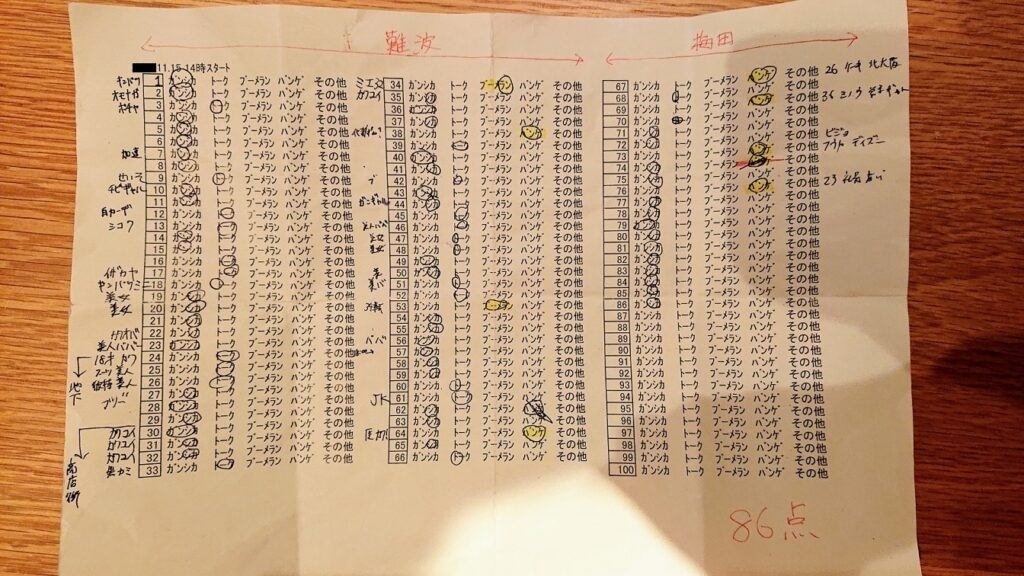 難波
梅田
11.15 14時スタート
1 ガンシカ トーク ブーメラン バンゲ その他
2 ガンシカ トーク ブーメラン バンゲ その他
3 ガンシカ トーク ブーメラン バンゲ その他
4 ガンシカ トーク ブーメラン バンゲ その他
5 ガンシカ トーク ブーメラン バンゲ その他
6 ガンシカ トーク ブーメラン バンゲ その他
7 ガンシカ トーク ブーメラン バンゲ その他
8 ガンシカ トーク ブーメラン バンゲ その他
9 ガンシカ トーク ブーメラン バンゲ その他
10 ガンシカ トーク ブーメラン バンゲ その他
11 ガンシカ トーク ブーメラン バンゲ その他
12 ガンシカ トーク ブーメラン バンゲ その他
シコク 13 ガンシカ トーク ブーメラン バンゲ その他
14 ガンシカ トーク ブーメラン バンゲ その他
15 ガンシカ トーク ブーメラン バンゲ その他
16 ガンシカ トーク ブーメラン バンゲ その他
17 ガンシカ トーク ブーメラン バンゲ その他
18 ガンシカ トーク ブーメラン バンゲ その他
美女 19 ガンシカ トーク ブーメラン バンゲ その他
美女 20 ガンシカ トーク ブーメラン バンゲ その他
21 ガンシカ トーク ブーメラン バンゲ その他
22 ガンシカ トーク ブーメラン バンゲ その他
23 ガンシカ トーク ブーメラン バンゲ その他
24 ガンシカ トーク ブーメラン バンゲ その他
25 ガンシカ トーク ブーメラン バンゲ その他
26 ガンシカ トーク ブーメラン バンゲ その他
27 ガンシカ トーク ブーメラン バンゲ その他
28 ガンシカ トーク ブーメラン バンゲ その他
29 ガンシカ トーク ブーメラン バンゲ その他
30 ガンシカ トーク ブーメラン バンゲ その他
31 ガンシカ トーク ブーメラン バンゲ その他
32 ガンシカ トーク ブーメラン バンゲ その他
33 ガンシカ トーク ブーメラン バンゲ その他
地下
商店街
34 ガンシカ トーク ブーメラン バンゲ その他
35 ガンシカ トーク ブーメラン バンゲ その他
36 ガンシカ トーク ブーメラン バンゲ その他
37 ガンシカ トーク ブーメラン バンゲ その他
38 ガンシカ トーク ブーメラン バンゲ その他
39 ガンシカ トーク ブーメラン バンゲ その他
40 ガンシカ トーク ブーメラン バンゲ その他
41 ガンシカ トーク ブーメラン バンゲ その他
ブ 42 ガンシカ トーク ブーメラン バンゲ その他
43 ガンシカ トーク ブーメラン バンゲ その他
44 ガンシカ トーク ブーメラン バンゲ その他
45 ガンシカ トーク ブーメラン バンゲ その他
46 ガンシカ トーク ブーメラン バンゲ その他
47 ガンシカ トーク ブーメラン バンゲ その他
48 ガンシカ トーク ブーメラン バンゲ その他
49 ガンシカ トーク ブーメラン バンゲ その他
50 ガンシカ トーク ブーメラン バンゲ その他
51 ガンシカ トーク ブーメラン バンゲ その他
52 ガンシカ トーク ブーメラン バンゲ その他
53 ガンシカ トーク ブーメラン バンゲ その他
54 ガンシカ トーク ブーメラン バンゲ その他
55 ガンシカ トーク ブーメラン バンゲ その他
56 ガンシカ トーク ブーメラン バンゲ その他
57 ガンシカ トーク ブーメラン バンゲ その他
58 ガンシカ トーク ブーメラン バンゲ その他
59 ガンシカ トーク ブーメラン バンゲ その他
60 ガンシカ トーク ブーメラン バンゲ その他
JK 61 ガンシカ トーク ブーメラン バンゲ その他
62 ガンシカ トーク ブーメラン バンゲ その他
63 ガンシカ トーク ブーメラン バンゲ その他
64 ガンシカ トーク ブーメラン バンゲ その他
65 ガンシカ トーク ブーメラン バンゲ その他
66 ガンシカ トーク ブーメラン バンゲ その他
67 ガンシカ トーク ブーメラン バンゲ その他 26
68 ガンシカ トーク ブーメラン バンゲ その他
69 ガンシカ トーク ブーメラン バンゲ その他
70 ガンシカ トーク ブーメラン バンゲ その他
71 ガンシカ トーク ブーメラン バンゲ その他
72 ガンシカ トーク ブーメラン バンゲ その他
73 ガンシカ トーク ブーメラン バンゲ その他
74 ガンシカ トーク ブーメラン バンゲ その他
75 ガンシカ トーク ブーメラン バンゲ その他
76 ガンシカ トーク ブーメラン バンゲ その他 23
77 ガンシカ トーク ブーメラン バンゲ その他
78 ガンシカ トーク ブーメラン バンゲ その他
79 ガンシカ トーク ブーメラン バンゲ その他
80 ガンシカ トーク ブーメラン バンゲ その他
81 ガンシカ トーク ブーメラン バンゲ その他
82 ガンシカ トーク ブーメラン バンゲ その他
83 ガンシカ トーク ブーメラン バンゲ その他
84 ガンシカ トーク ブーメラン バンゲ その他
85 ガンシカ トーク ブーメラン バンゲ その他
86 ガンシカ トーク ブーメラン バンゲ その他
87 ガンシカ トーク ブーメラン バンゲ その他
88 ガンシカ トーク ブーメラン バンゲ その他
89 ガンシカ トーク ブーメラン バンゲ その他
90 ガンシカ トーク ブーメラン バンゲ その他
91 ガンシカ トーク ブーメラン バンゲ その他
92 ガンシカ トーク ブーメラン バンゲ その他
93 ガンシカ トーク ブーメラン バンゲ その他
94 ガンシカ トーク ブーメラン バンゲ その他
95 ガンシカ トーク ブーメラン バンゲ その他
96 ガンシカ トーク ブーメラン バンゲ その他
97 ガンシカ トーク ブーメラン バンゲ その他
98 ガンシカ トーク ブーメラン バンゲ その他
99 ガンシカ トーク ブーメラン バンゲ その他
100 ガンシカ トーク ブーメラン バンゲ その他
86点